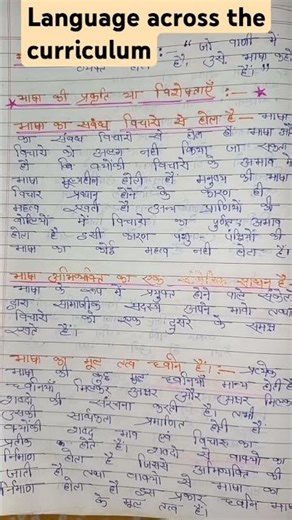 Language across the
curriculum
" जो वाणी में
होती है, उसे भाषा कहते
हैं।"
भाषा की प्रकृति या विशेषताएँ :-
भाषा का संबंध विचारों से होता है- भाषा
का संबंध विचारों से होता है भाषा और
विचारों को अलग नहीं किया जा सकता
है कि क्योंकी विचारों के अभाव में
भाषा मूल्यहीन होती है मनुष्य की भाषा
विचार प्रधान होने के कारण ही
महत्व रखती है अन्य प्राणियों की
वाणियों में विचारों का पूर्णतः अभाव
होता है इसी कारण पशु-पक्षियों की
भाषा का कोई महत्व नहीं होता है।
भाषा अभिव्यक्ति का एक साधन है
भाषा के रूप में प्रयुक्त होने वाले संकेतों
द्वारा सामाजिक सदस्य अपने भावों तथा
विचारों को एक दूसरे के समक्ष
रखते हैं।
भाषा का मूल तत्व ध्वनि है :- प्रत्येक
भाषा की कुछ मूल ध्वनियाँ मान्य होती हैं
ध्वनियाँ मिलकर अक्षर और अक्षर मिलकर
शब्दों की संरचना करते हैं। तभी
उसकी सार्थकता प्रमाणित होती है
क्योंकी शब्द भाव एवं विचारों का
प्रतीक होते है। शब्दों से वाक्यों का
निर्माण होता है जिससे अभिव्यक्ति की
जाती है तथा वाक्यों से भाषा का
निर्माण होता है इस प्रकार ध्वनि भाषा
के मूल तत्व है।